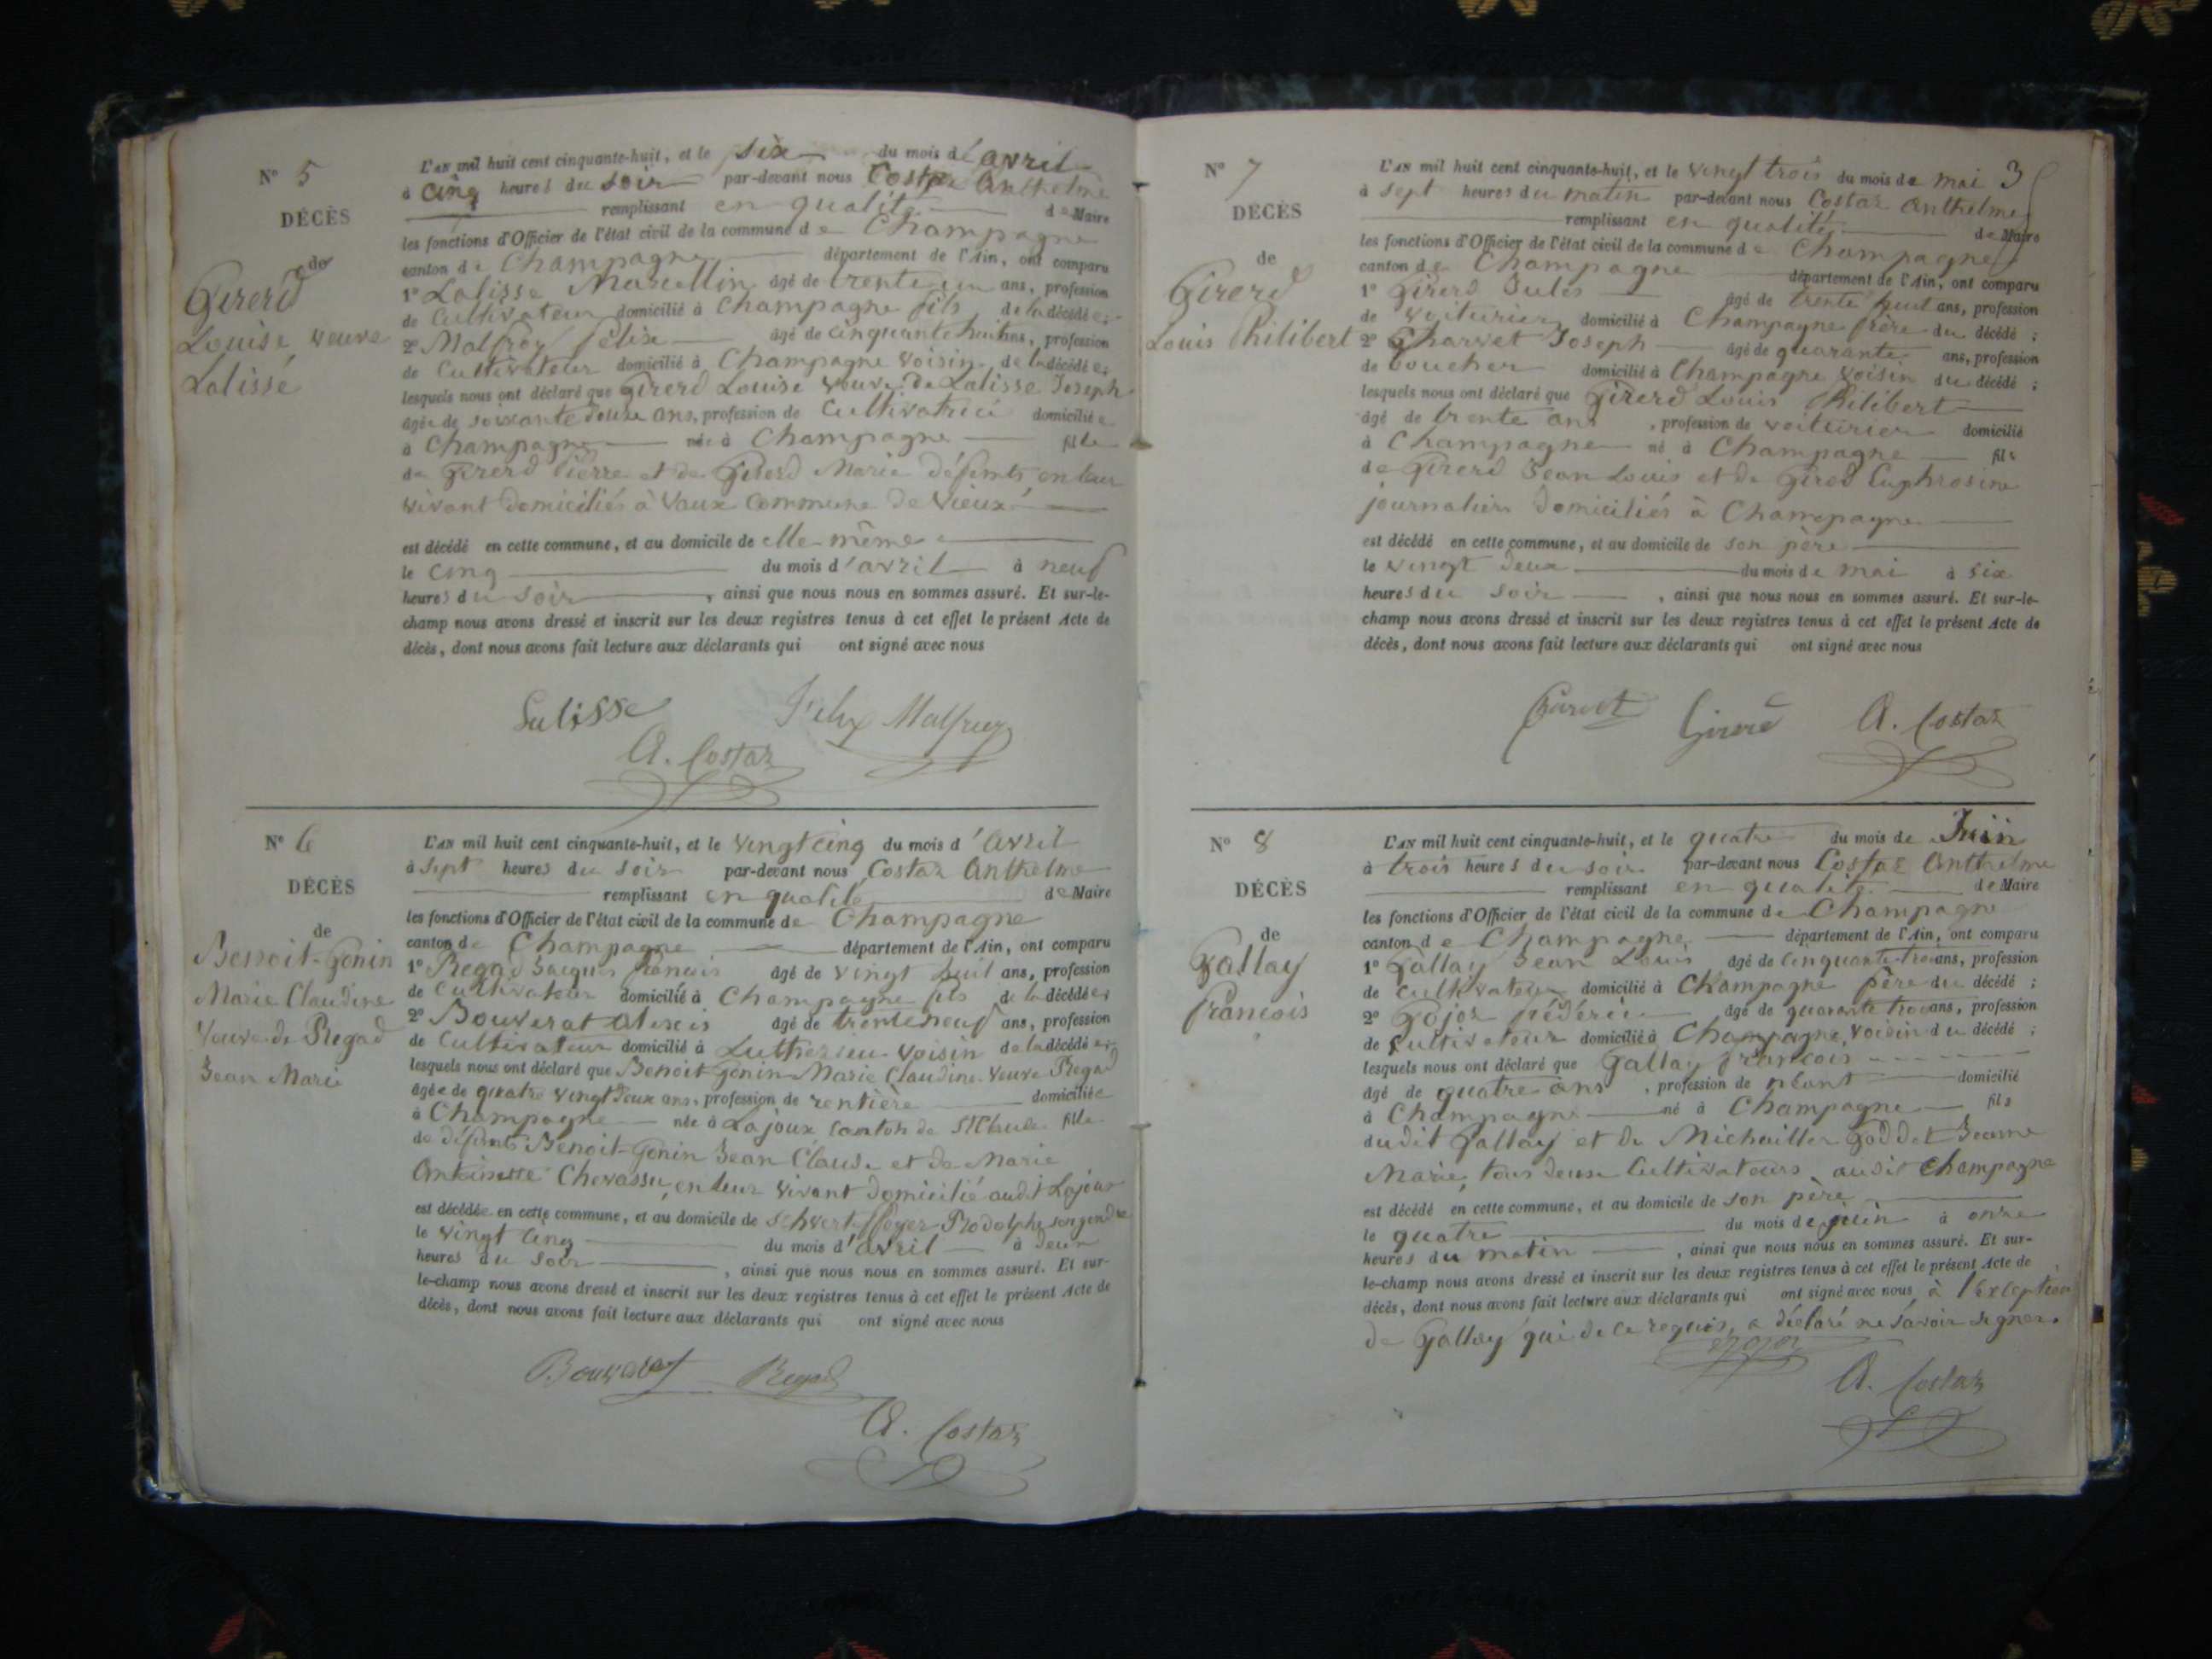 N° 5
DÉCÈS
de
Girerd
Louise, veuve
Lalisse
L'AN mil huit cent cinquante-huit, et le six du mois d'avril
à cinq heures du soir par-devant nous Costaz Anthelme
remplissant en qualité de Maire
les fonctions d'Officier de l'état civil de la commune de Champagne
canton de Champagne département de l'Ain, ont comparu
1° Lalisse Marcellin âgé de trente un ans, profession
de Cultivateur domicilié à Champagne fils de la décédée;
2° Malfroy Félix âgé de cinquante huit ans, profession
de Cultivateur domicilié à Champagne voisin de la décédée;
lesquels nous ont déclaré que Girerd Louise veuve de Lalisse Joseph
âgée de soixante douze ans, profession de Cultivatrice domiciliée
à Champagne née à Champagne fille
de Girerd Pierre et de Marie défunts, en leur
vivant domiciliés à Vaux commune de Vieux
est décédé en cette commune, et au domicile de elle-même
le cinq du mois d'avril à neuf
heures du soir, ainsi que nous nous en sommes assuré. Et sur-le-
champ nous avons dressé et inscrit sur les deux registres tenus à cet effet le présent Acte de
décès, dont nous avons fait lecture aux déclarants qui ont signé avec nous
Lalisse Félix Malfroy
A. Costaz
N° 6
DÉCÈS
de
Benoit-Gonin
Marie Claudine
Veuve de Regad
Jean Marie
L'AN mil huit cent cinquante-huit, et le vingt cinq du mois d'avril
à sept heures du soir par-devant nous Costaz Anthelme
remplissant en qualité de Maire
les fonctions d'Officier de l'état civil de la commune de Champagne
canton de Champagne département de l'Ain, ont comparu
1° Regad Jacques françois âgé de vingt huit ans, profession
de Cultivateur domicilié à Champagne fils de la décédée;
2° Bouverat Alexis âgé de trente neuf ans, profession
de Cultivateur domicilié à Luthezieu voisin de la décédée;
lesquels nous ont déclaré que Benoit-Gonin Marie Claudine Veuve Regad
âgée de quatre vingt deux ans, profession de rentière domiciliée
à Champagne née à Lajoux canton de St Claude fille
de défunts Benoit-Gonin Jean Claude et de Marie
Antoinette Chevassu, en leur vivant domicilié audit Lajoux
est décédée en cette commune, et au domicile de Rodolphe son gendre
le vingt cinq du mois d'avril à deux
heures du soir, ainsi que nous nous en sommes assuré. Et sur-
le-champ nous avons dressé et inscrit sur les deux registres tenus à cet effet le présent Acte de
décès, dont nous avons fait lecture aux déclarants qui ont signé avec nous
Bouverat Regad
A. Costaz
3
N° 7
DÉCÈS
de
Girerd
Louis Philibert
L'AN mil huit cent cinquante-huit, et le vingt trois du mois de mai
à sept heures du matin par-devant nous Costaz Anthelme
remplissant en qualité de Maire
les fonctions d'Officier de l'état civil de la commune de Champagne
canton de Champagne département de l'Ain, ont comparu
1° Girerd Jules âgé de trente huit ans, profession
de voiturier domicilié à Champagne frère du décédé;
2° Charvet Joseph âgé de quarante ans, profession
de boucher domicilié à Champagne voisin du décédé;
lesquels nous ont déclaré que Girerd Louis Philibert
âgé de trente ans, profession de voiturier domicilié
à Champagne né à Champagne fils
de Girerd Jean Louis et de Euphrosine
journaliers domiciliés à Champagne
est décédé en cette commune, et au domicile de son père
le vingt deux du mois de mai à six
heures du soir, ainsi que nous nous en sommes assuré. Et sur-le-
champ nous avons dressé et inscrit sur les deux registres tenus à cet effet le présent Acte de
décès, dont nous avons fait lecture aux déclarants qui ont signé avec nous
Charvet Girerd A. Costaz
N° 8
DÉCÈS
de
Gallay
francois
L'AN mil huit cent cinquante-huit, et le quatre du mois de Juin
à trois heures du soir par-devant nous Costaz Anthelme
remplissant en qualité de Maire
les fonctions d'Officier de l'état civil de la commune de Champagne
canton de Champagne département de l'Ain, ont comparu
1° Gallay Jean Louis âgé de cinquante-trois ans, profession
de cultivateur domicilié à Champagne père du décédé;
2° Gojoz fréderic âgé de quarante trois ans, profession
de Cultivateur domicilié à Champagne, voisin du décédé;
lesquels nous ont déclaré que Gallay françois
âgé de quatre ans, profession de néant domicilié
à Champagne né à Champagne fils
dudit Gallay et de Michailler Goddet Jeanne
Marie, tous deux Cultivateurs audit Champagne
est décédé en cette commune, et au domicile de son père
le quatre du mois de juin à onze
heures du matin, ainsi que nous nous en sommes assuré. Et sur-
le-champ nous avons dressé et inscrit sur les deux registres tenus à cet effet le présent Acte de
décès, dont nous avons fait lecture aux déclarants qui ont signé avec nous, à l'exception
de Gallay qui de ce requis, a déclaré ne savoir signer.
Gojoz
A. Costaz